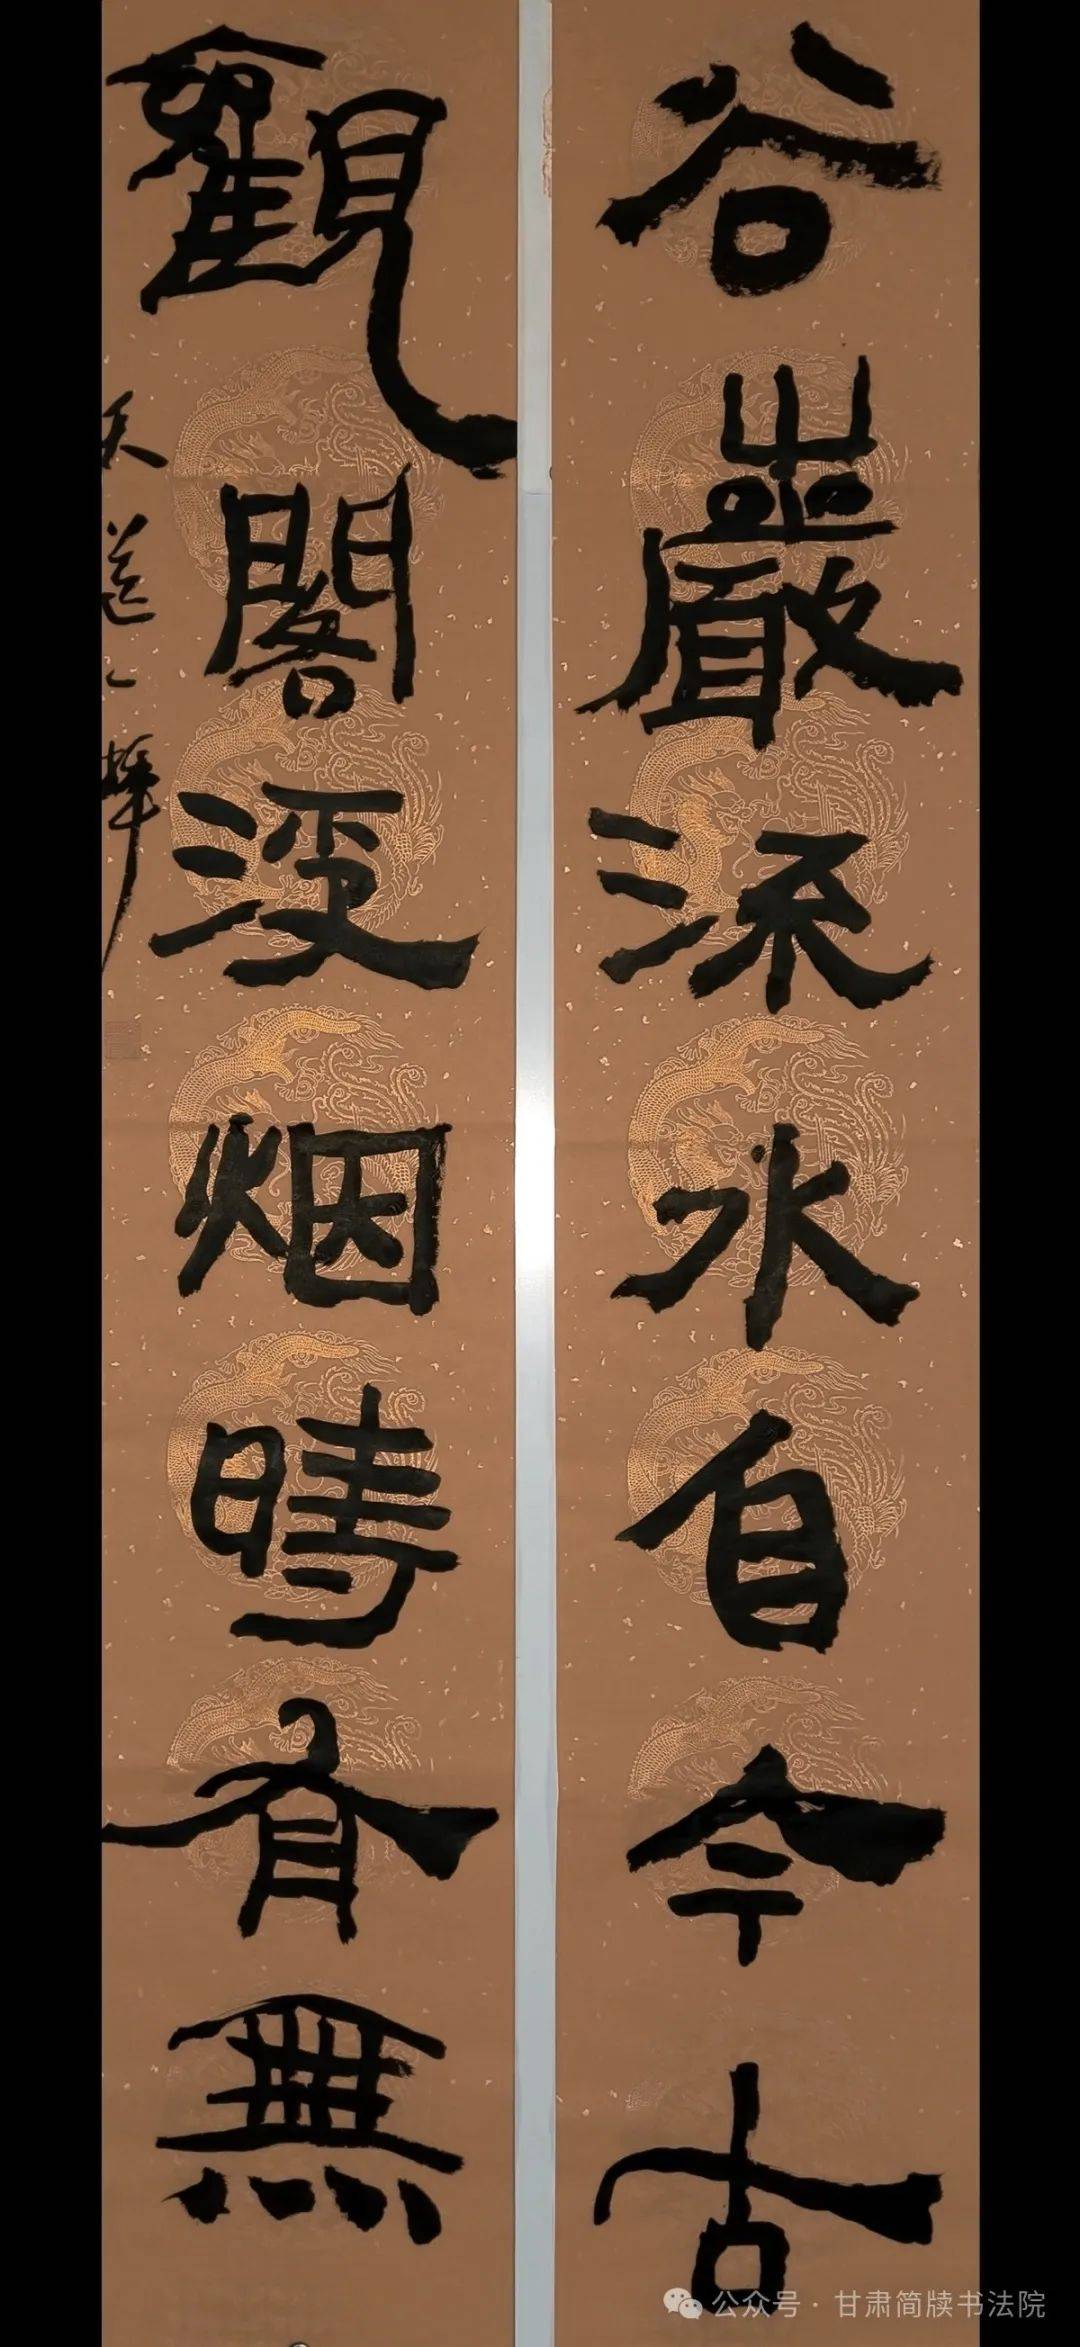 谷巖流水自今古
觀閣烟時有無
公众号·甘肃简牍书法院